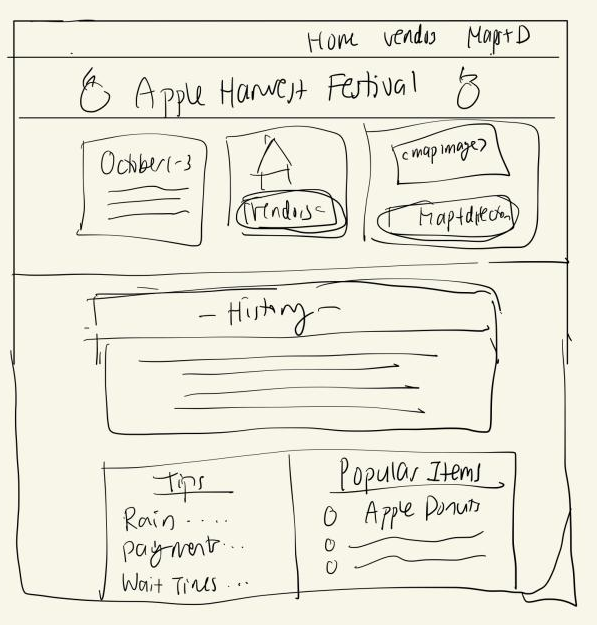 Home vendos Map+D
Apple Harvest Festival
October 1-3
Vendors
<map image>
Map+direction
- History -
Tips
Rain ....
payment...
Wait Times ...
Popular Items
Apple Donuts